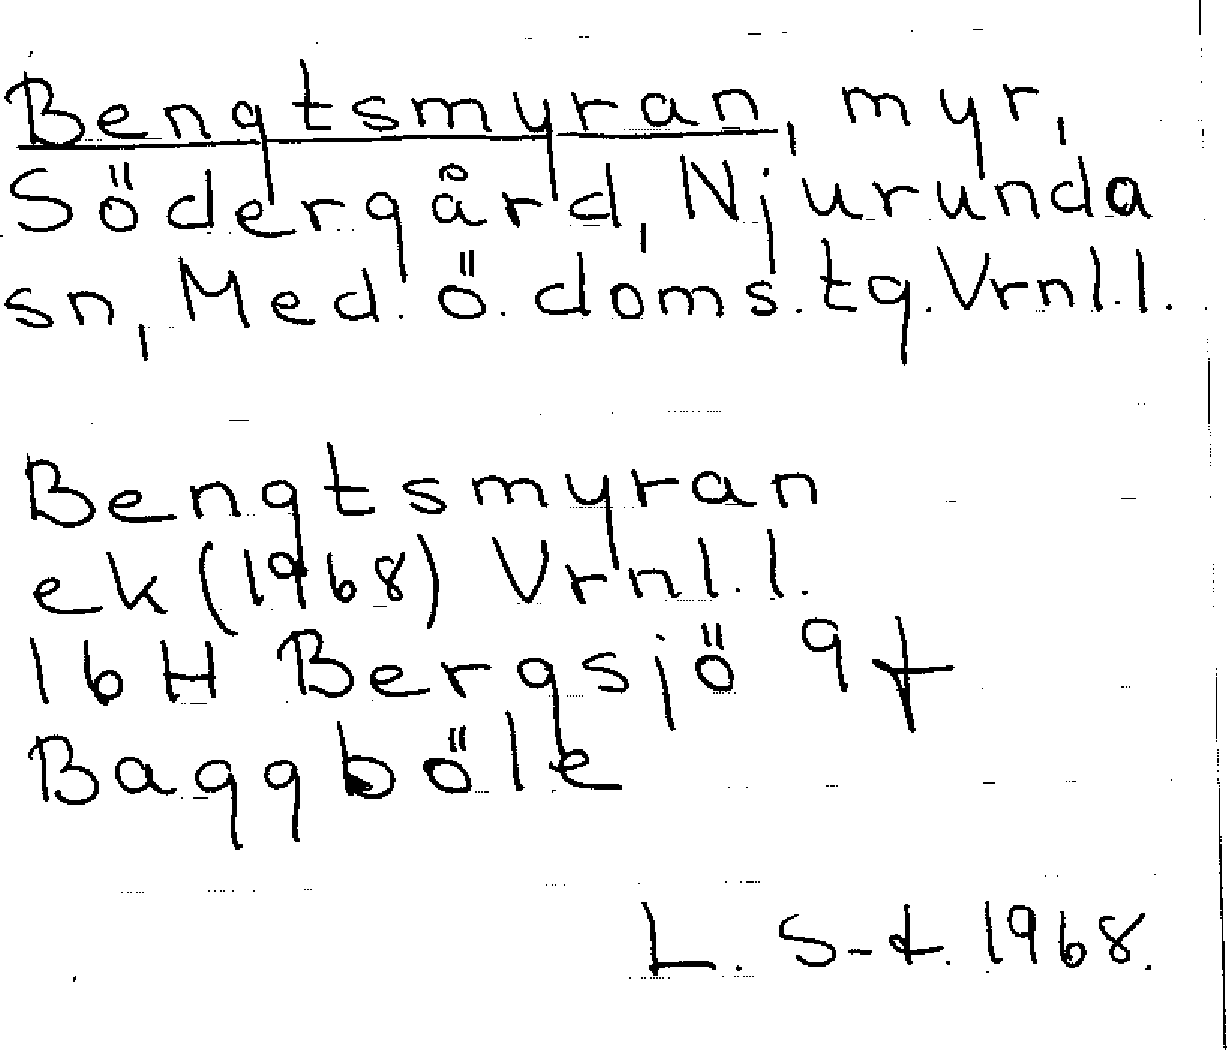 Bengtsmyran, myr,
Södergård, Njurunda
sn, Med. ö. doms. tg. Vrnl.l.
Bengtsmyran
ek (1968) Vrnl.l.
16H Bergsjö 9f
Baggböle
L. S-t. 1968.